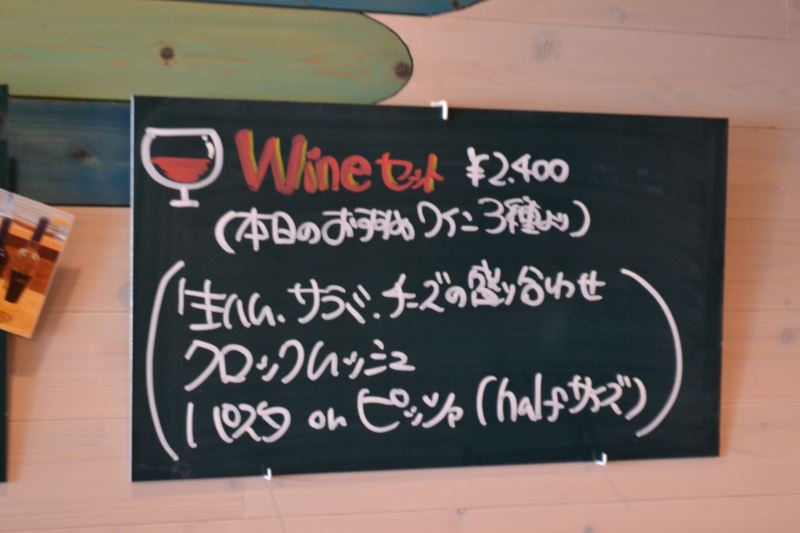 Wineセット ¥2.400
(本日のおすすめワイン3種より)
生ハム、サラミ、チーズの盛り合わせ
クロックムッシュ
パスタ or ピッツァ (halfサイズ)